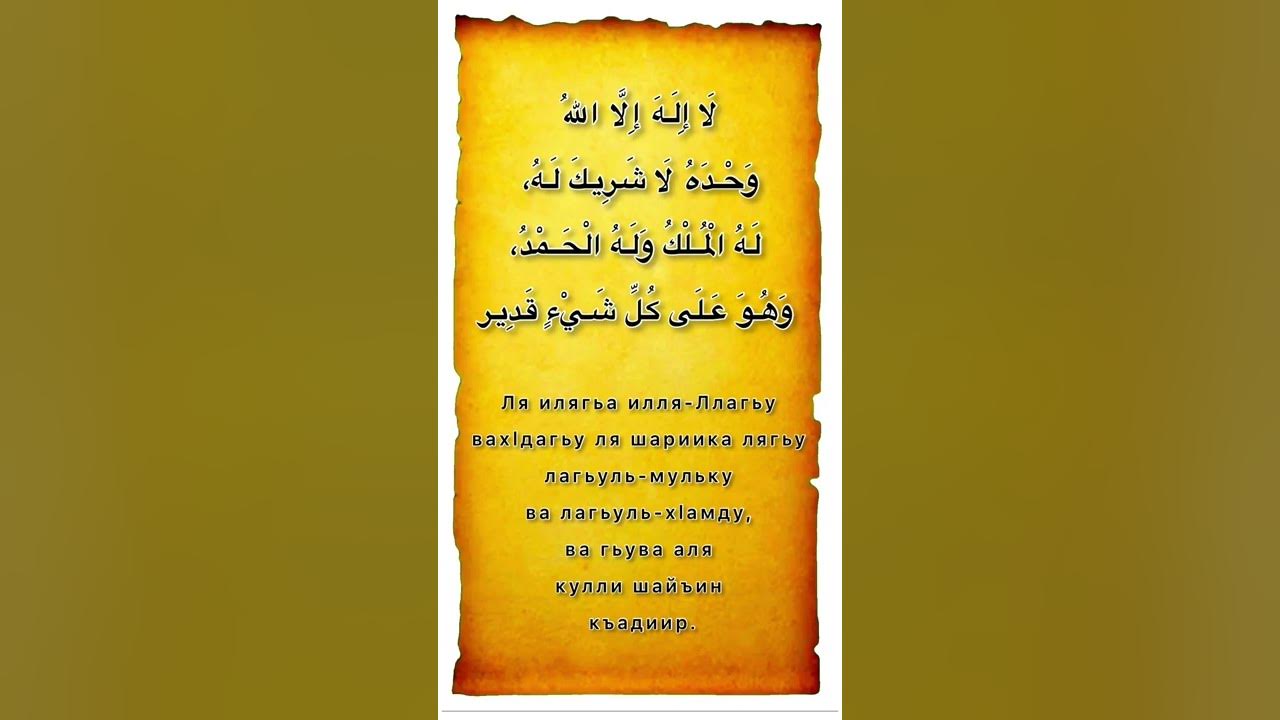 لَا إِلَـهَ إِلَّا اللهُ
وَحْـدَهُ لَا شَـرِيـكَ لَـهُ،
لَـهُ الْمُـلْكُ وَلَـهُ الْـحَـمْـدُ،
وَهُـوَ عَـلَـى كُلِّ شَـيْءٍ قَدِيـر
Ля илягьа илля-Ллагьу
вахӀдагьу ля шариика лягьу
лагьуль-мульку
ва лагьуль-хӀамду,
ва гьува аля
кулли шайъин
къадиир.